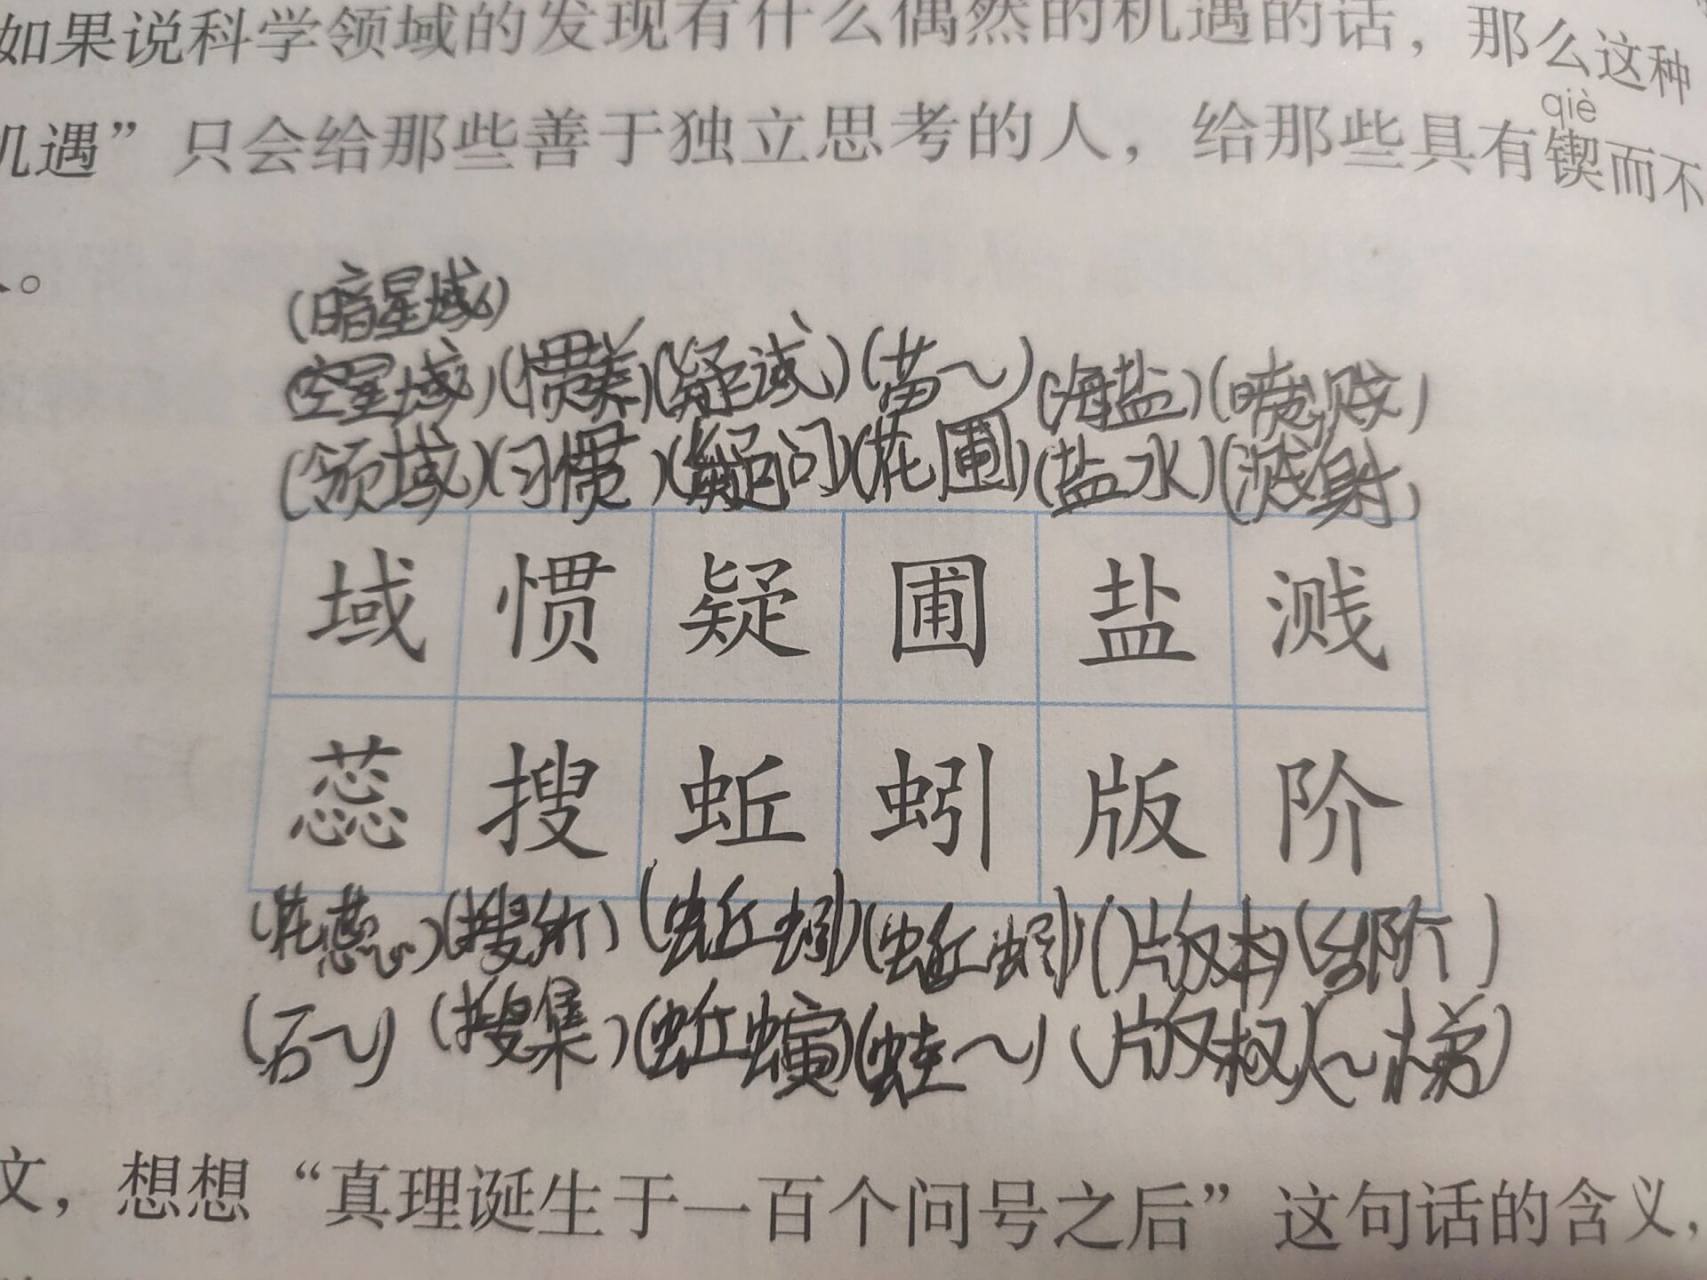 如果说科学领域的发现有什么偶然的机遇的话，那么这种
机遇”只会给那些善于独立思考的人，给那些具有锲而不
qiè
人。
(暗星域)
(空星域)(惯养)(疑惑)(苗～)(海盐)(喷溅)
(领域)(习惯)(疑问)(花圃)(盐水)(溅射)
域 惯 疑 圃 盐 溅
蕊 搜 蚯 蚓 版 阶
(花蕊)(搜索)(蚯蚓)(蚯蚓)(版本)(台阶)
(石～)(搜集)(蚯螾)(蛙～)(版权)(～梯)
文，想想“真理诞生于一百个问号之后”这句话的含义，